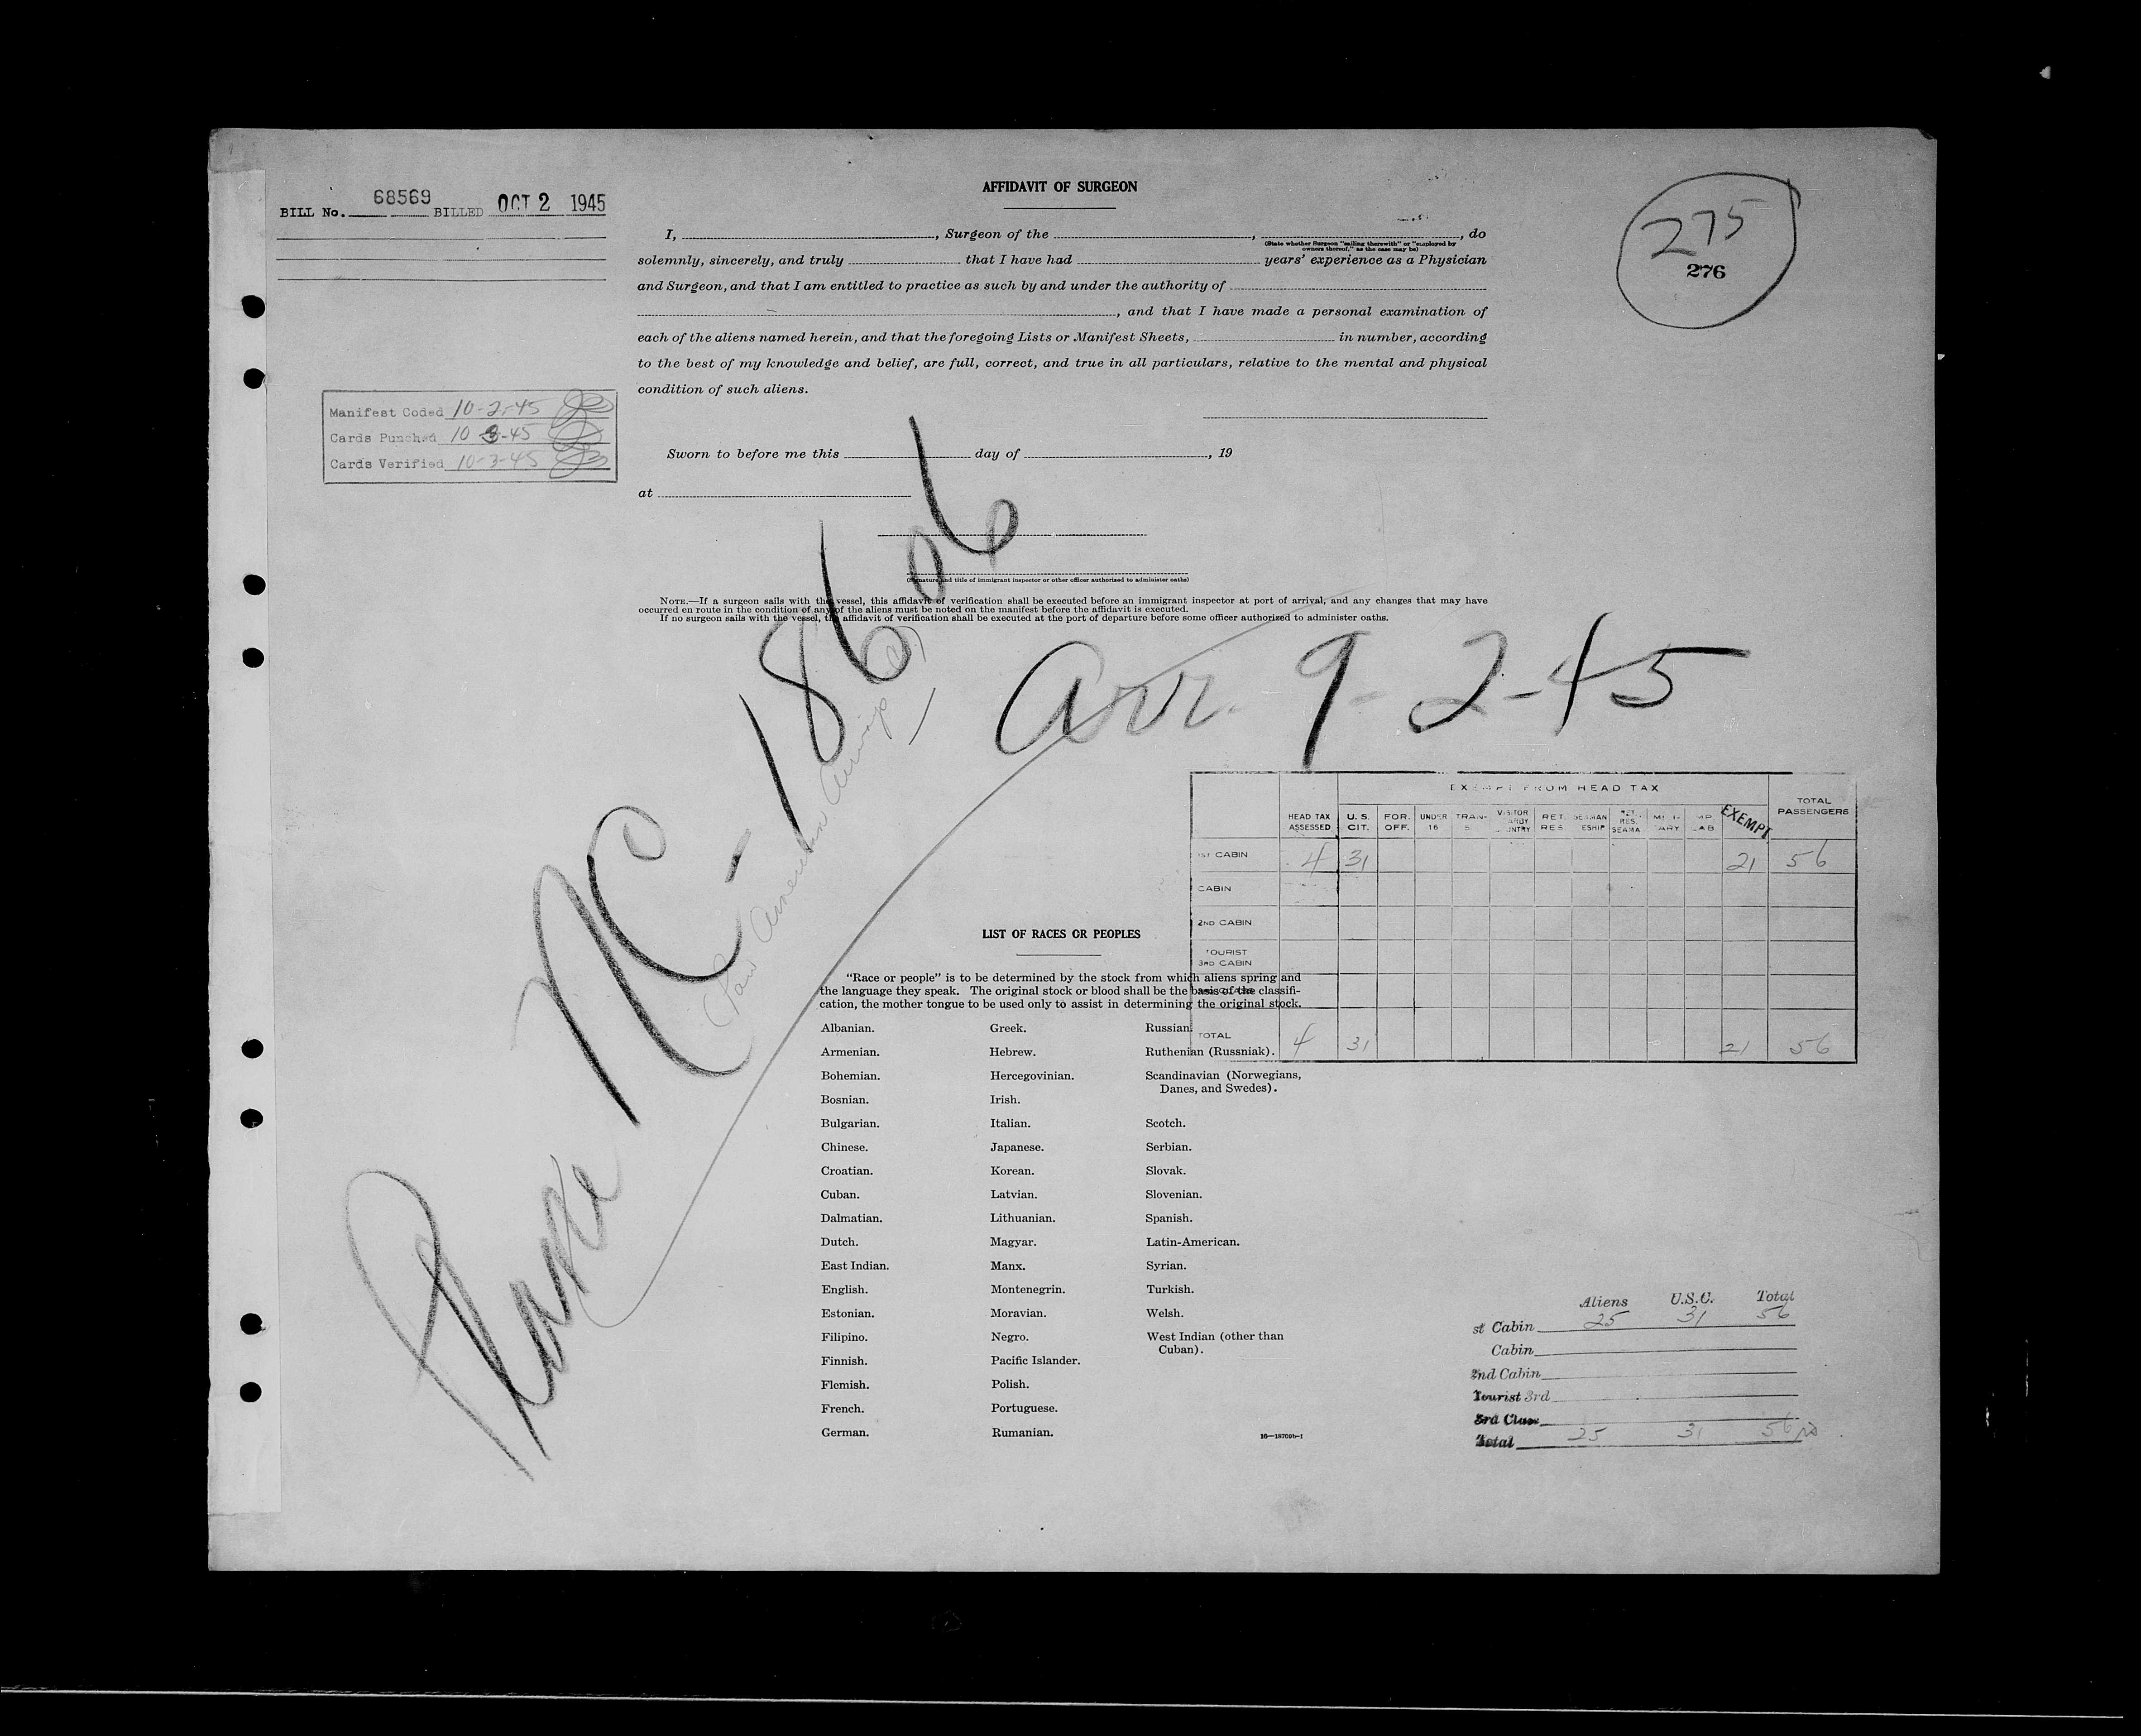 BILL No. 68569 BILLED OCT 2 1945
AFFIDAVIT OF SURGEON
275
276
I, , Surgeon of the , , do
(State whether Surgeon "sailing therewith" or "employed by
owners thereof," as the case may be)
solemnly, sincerely, and truly that I have had years' experience as a Physician
and Surgeon, and that I am entitled to practice as such by and under the authority of
, and that I have made a personal examination of
each of the aliens named herein, and that the foregoing Lists or Manifest Sheets, in number, according
to the best of my knowledge and belief, are full, correct, and true in all particulars, relative to the mental and physical
condition of such aliens.
Manifest Coded 10-2-45
Cards Punched 10-3-45
Cards Verified 10-3-45
Sworn to before me this day of , 19
at
(Signature and title of immigrant inspector or other officer authorized to administer oaths)
NOTE.—If a surgeon sails with the vessel, this affidavit of verification shall be executed before an immigrant inspector at port of arrival, and any changes that may have
occurred en route in the condition of any of the aliens must be noted on the manifest before the affidavit is executed.
If no surgeon sails with the vessel, the affidavit of verification shall be executed at the port of departure before some officer authorized to administer oaths.
Plane NC-18606
(Pan American Airways
Arr. 9-2-45
EXEMPT FROM HEAD TAX
HEAD TAX ASSESSED
U. S. CIT.
FOR. OFF.
UNDER 16
TRAN-S
VISITOR
RET. RES.
RES. SEAMA
EXEMPT
TOTAL PASSENGERS
1ST CABIN 4 31 21 56
CABIN
2ND CABIN
TOURIST
3RD CABIN
TOTAL 4 31 21 56
LIST OF RACES OR PEOPLES
"Race or people" is to be determined by the stock from which aliens spring and
the language they speak. The original stock or blood shall be the basis of the classifi-
cation, the mother tongue to be used only to assist in determining the original stock.
Albanian. Greek. Russian.
Armenian. Hebrew. Ruthenian (Russniak).
Bohemian. Hercegovinian. Scandinavian (Norwegians,
Danes, and Swedes).
Bosnian. Irish.
Bulgarian. Italian. Scotch.
Chinese. Japanese. Serbian.
Croatian. Korean. Slovak.
Cuban. Latvian. Slovenian.
Dalmatian. Lithuanian. Spanish.
Dutch. Magyar. Latin-American.
East Indian. Manx. Syrian.
English. Montenegrin. Turkish.
Estonian. Moravian. Welsh.
Filipino. Negro. West Indian (other than
Cuban).
Finnish. Pacific Islander.
Flemish. Polish.
French. Portuguese.
German. Rumanian.
16—18700b-1
Aliens U.S.C. Total
st Cabin 25 31 56
Cabin
2nd Cabin
Tourist 3rd
3rd Class
Total 25 31 56